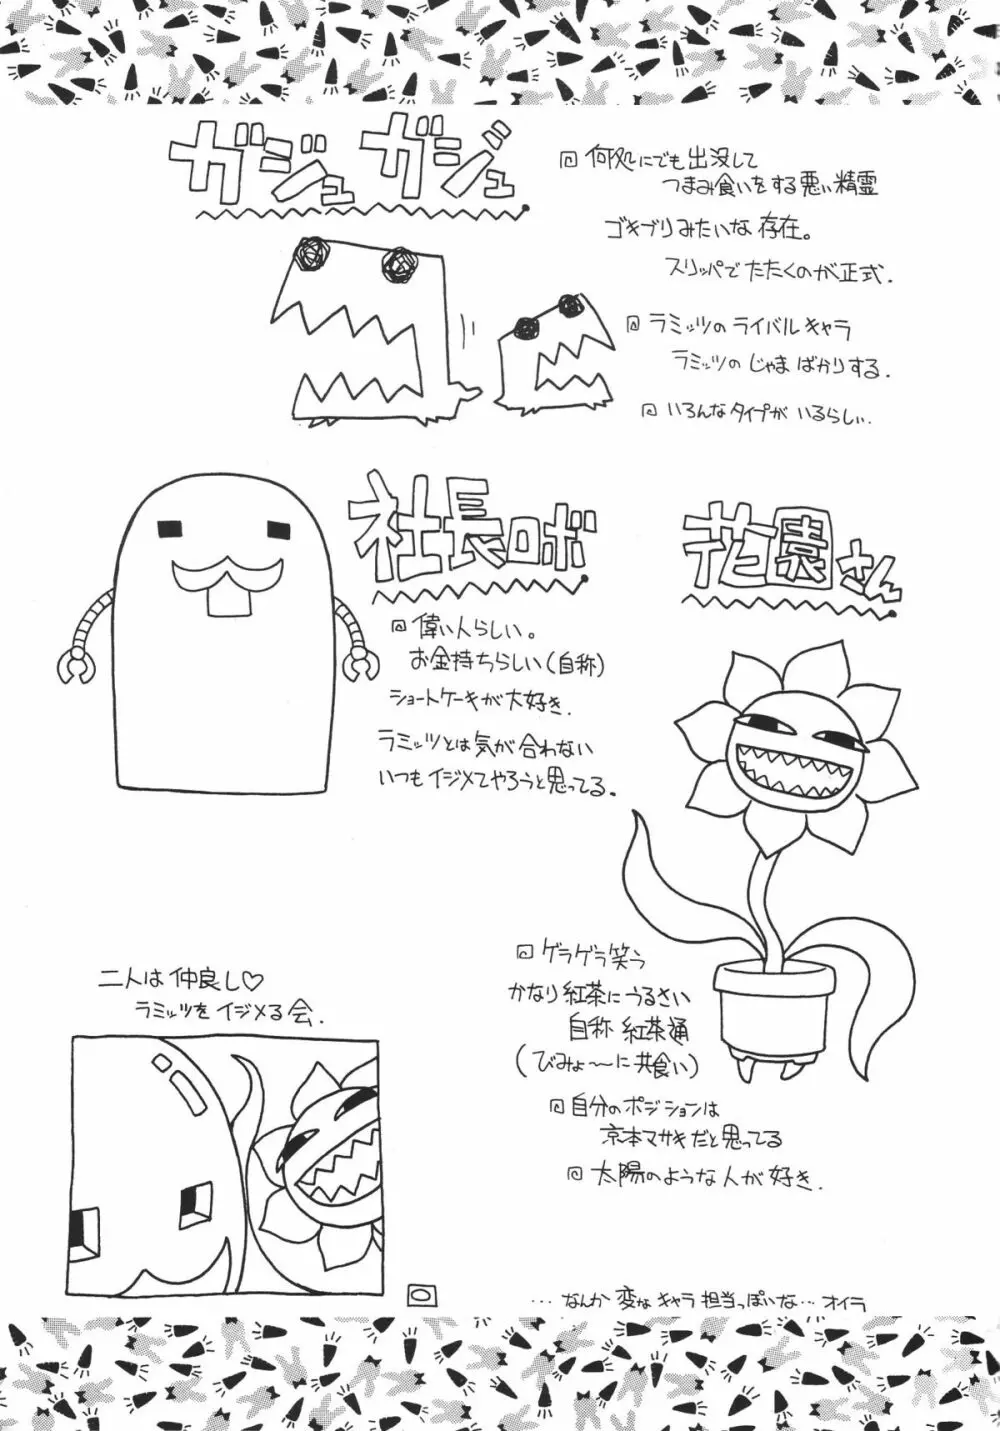 ガジュガジュ
回 何処にでも出没して
つまみ食いをする悪い精霊
ゴキブリみたいな存在。
スリッパでたたくのが正式.
回 ラミッツのライバルキャラ
ラミッツのじゃまばかりする.
回 いろんなタイプがいるらしい.
社長ロボ
回 偉い人らしい。
お金持ちらしい(自称)
ショートケーキが大好き.
ラミッツとは気が合わない
いつもイジメてやろうと思ってる.
花園さん
回 ゲラゲラ笑う
かなり紅茶にうるさい
自称 紅茶通
(びみょ〜に共食い)
回 自分のポジションは
京本マサキだと思ってる
回 太陽のような人が好き.
二人は仲良し♡
ラミッツをイジメる会.
…なんか変なキャラ担当っぽいな…オイラ